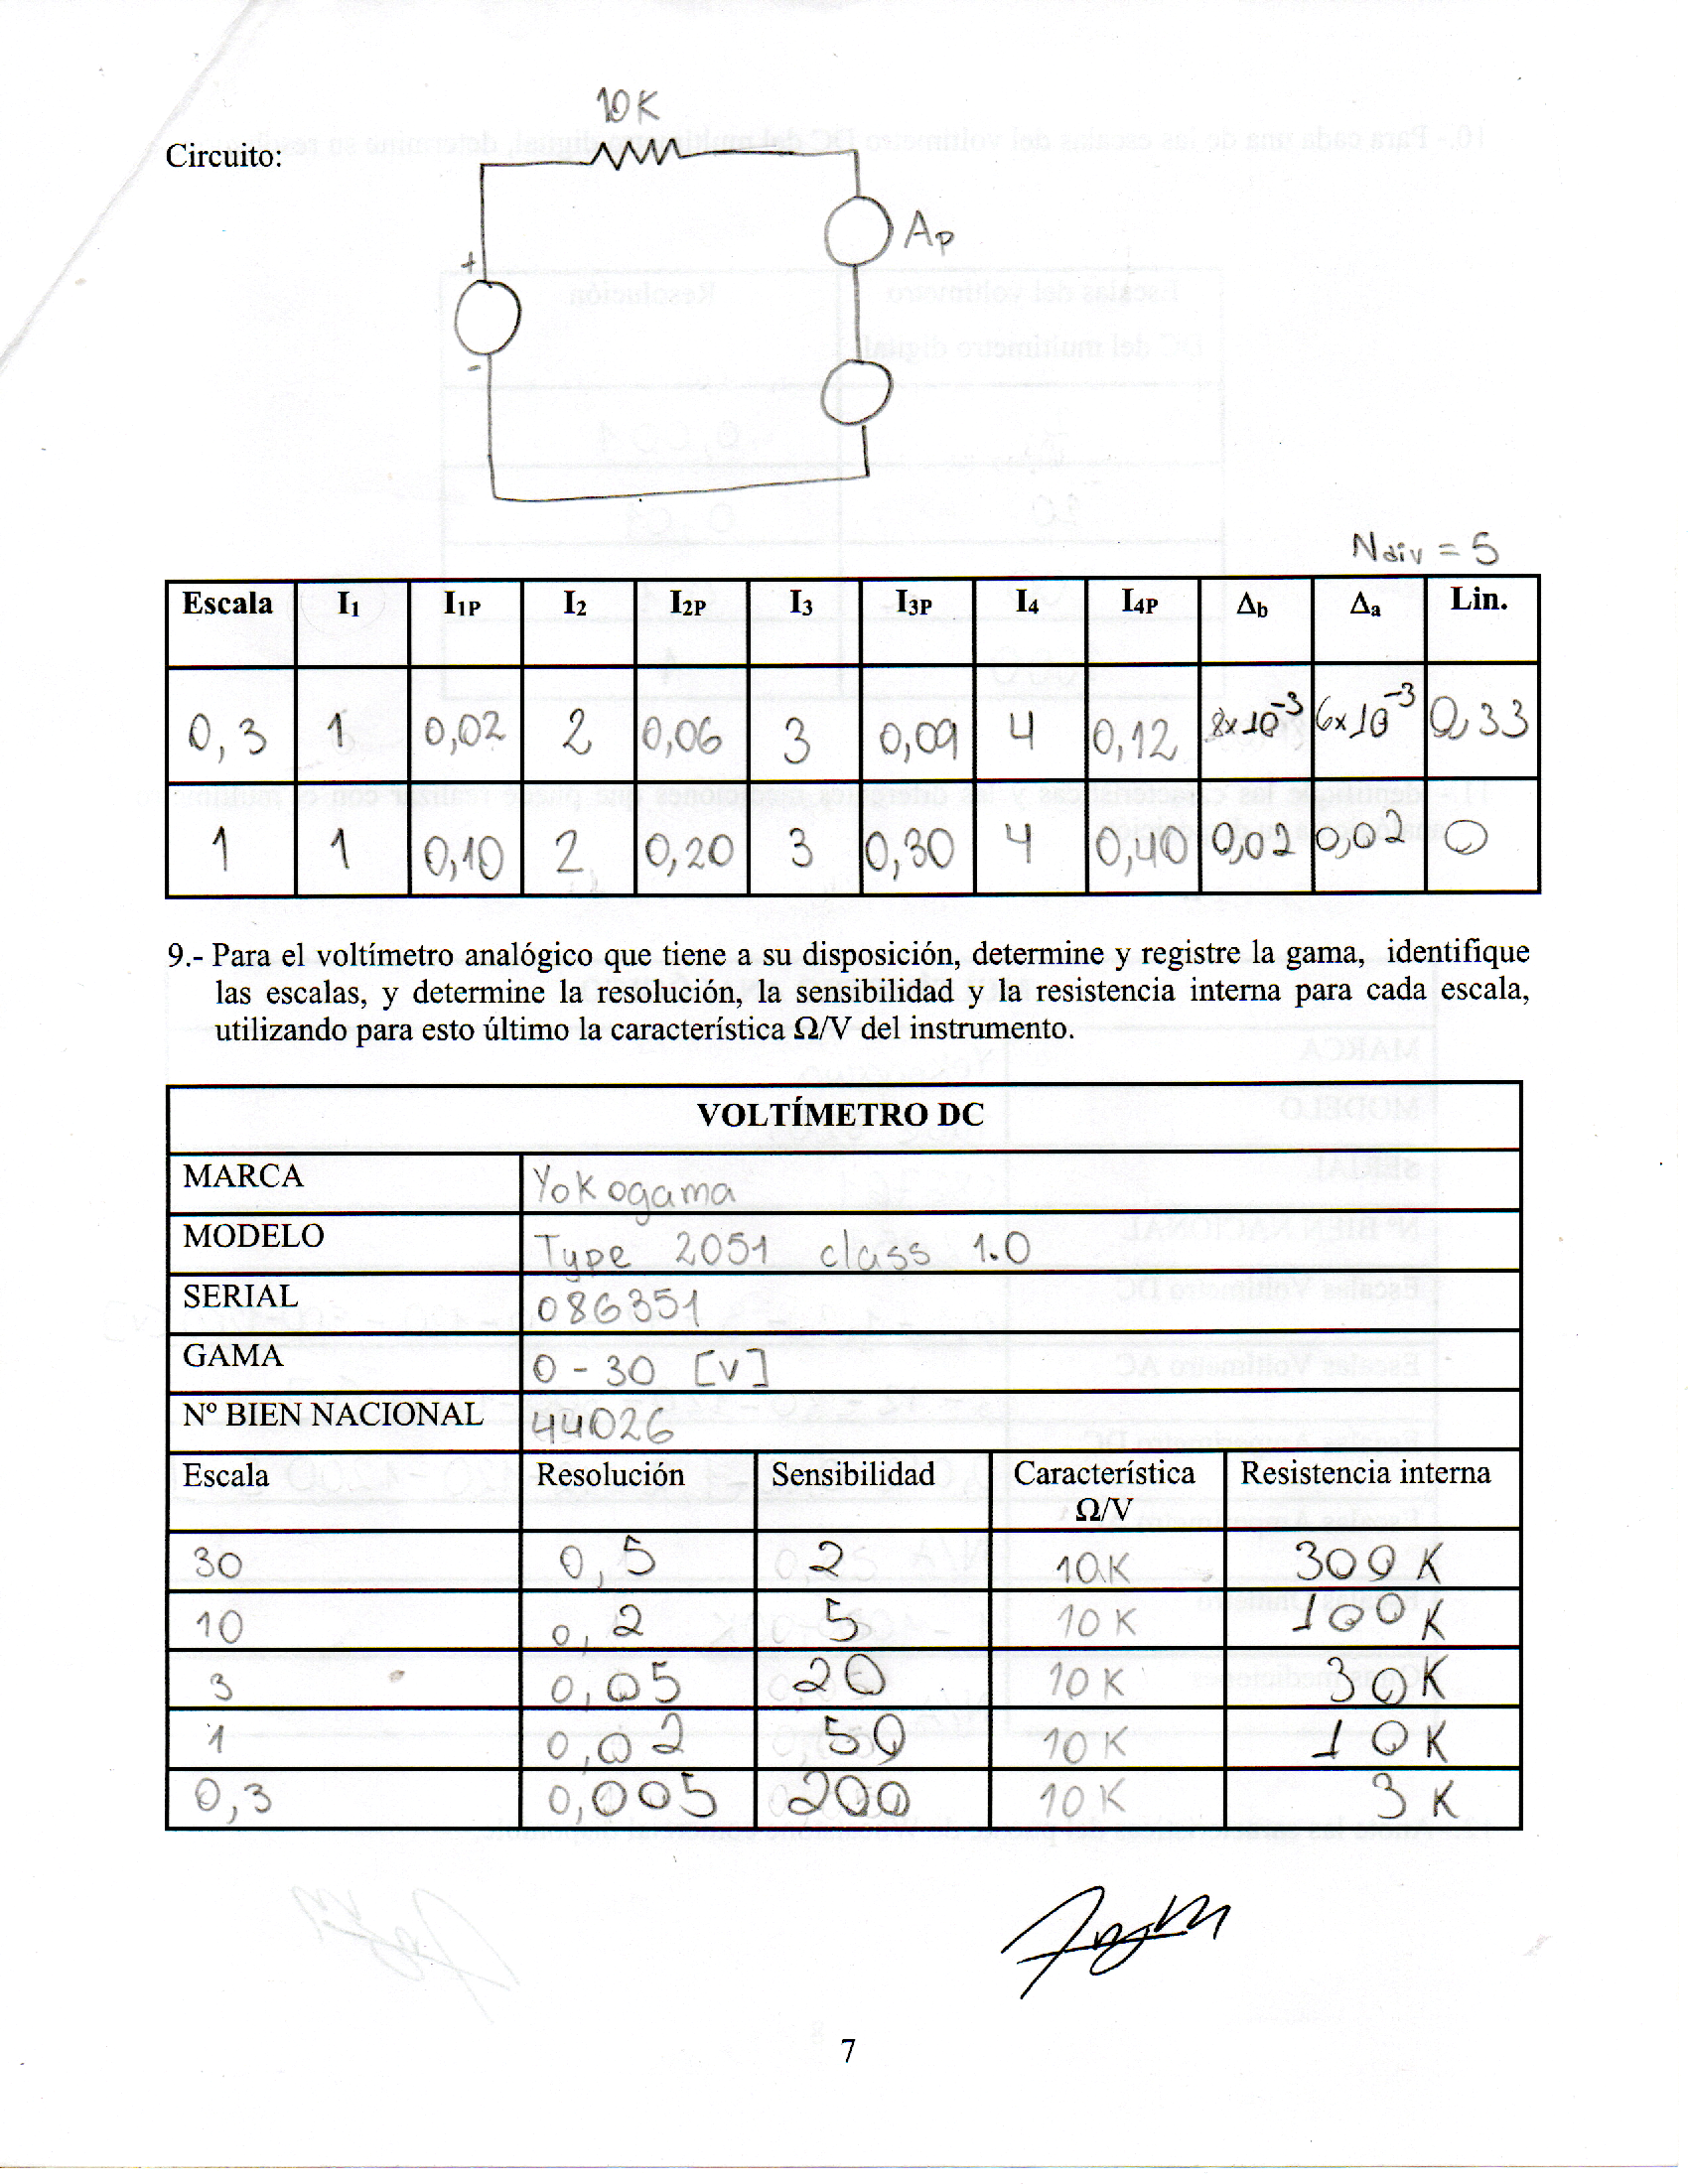 10K
Circuito:
+
Ap
-
Ndiv = 5
Escala I1 I1P I2 I2P I3 I3P I4 I4P Δb Δa Lin.
0,3 1 0,02 2 0,06 3 0,09 4 0,12 8x10⁻³ 6x10⁻³ 0,33
1 1 0,10 2 0,20 3 0,30 4 0,40 0,02 0,02 0
9.- Para el voltímetro analógico que tiene a su disposición, determine y registre la gama, identifique
las escalas, y determine la resolución, la sensibilidad y la resistencia interna para cada escala,
utilizando para esto último la característica Ω/V del instrumento.
VOLTÍMETRO DC
MARCA Yokogama
MODELO Type 2051 class 1.0
SERIAL 086351
GAMA 0 - 30 [V]
Nº BIEN NACIONAL 44026
Escala Resolución Sensibilidad Característica Resistencia interna
Ω/V
30 0,5 2 10K 300K
10 0,2 5 10K 100K
3 0,05 20 10K 30K
1 0,02 50 10K 10K
0,3 0,005 200 10K 3K
7